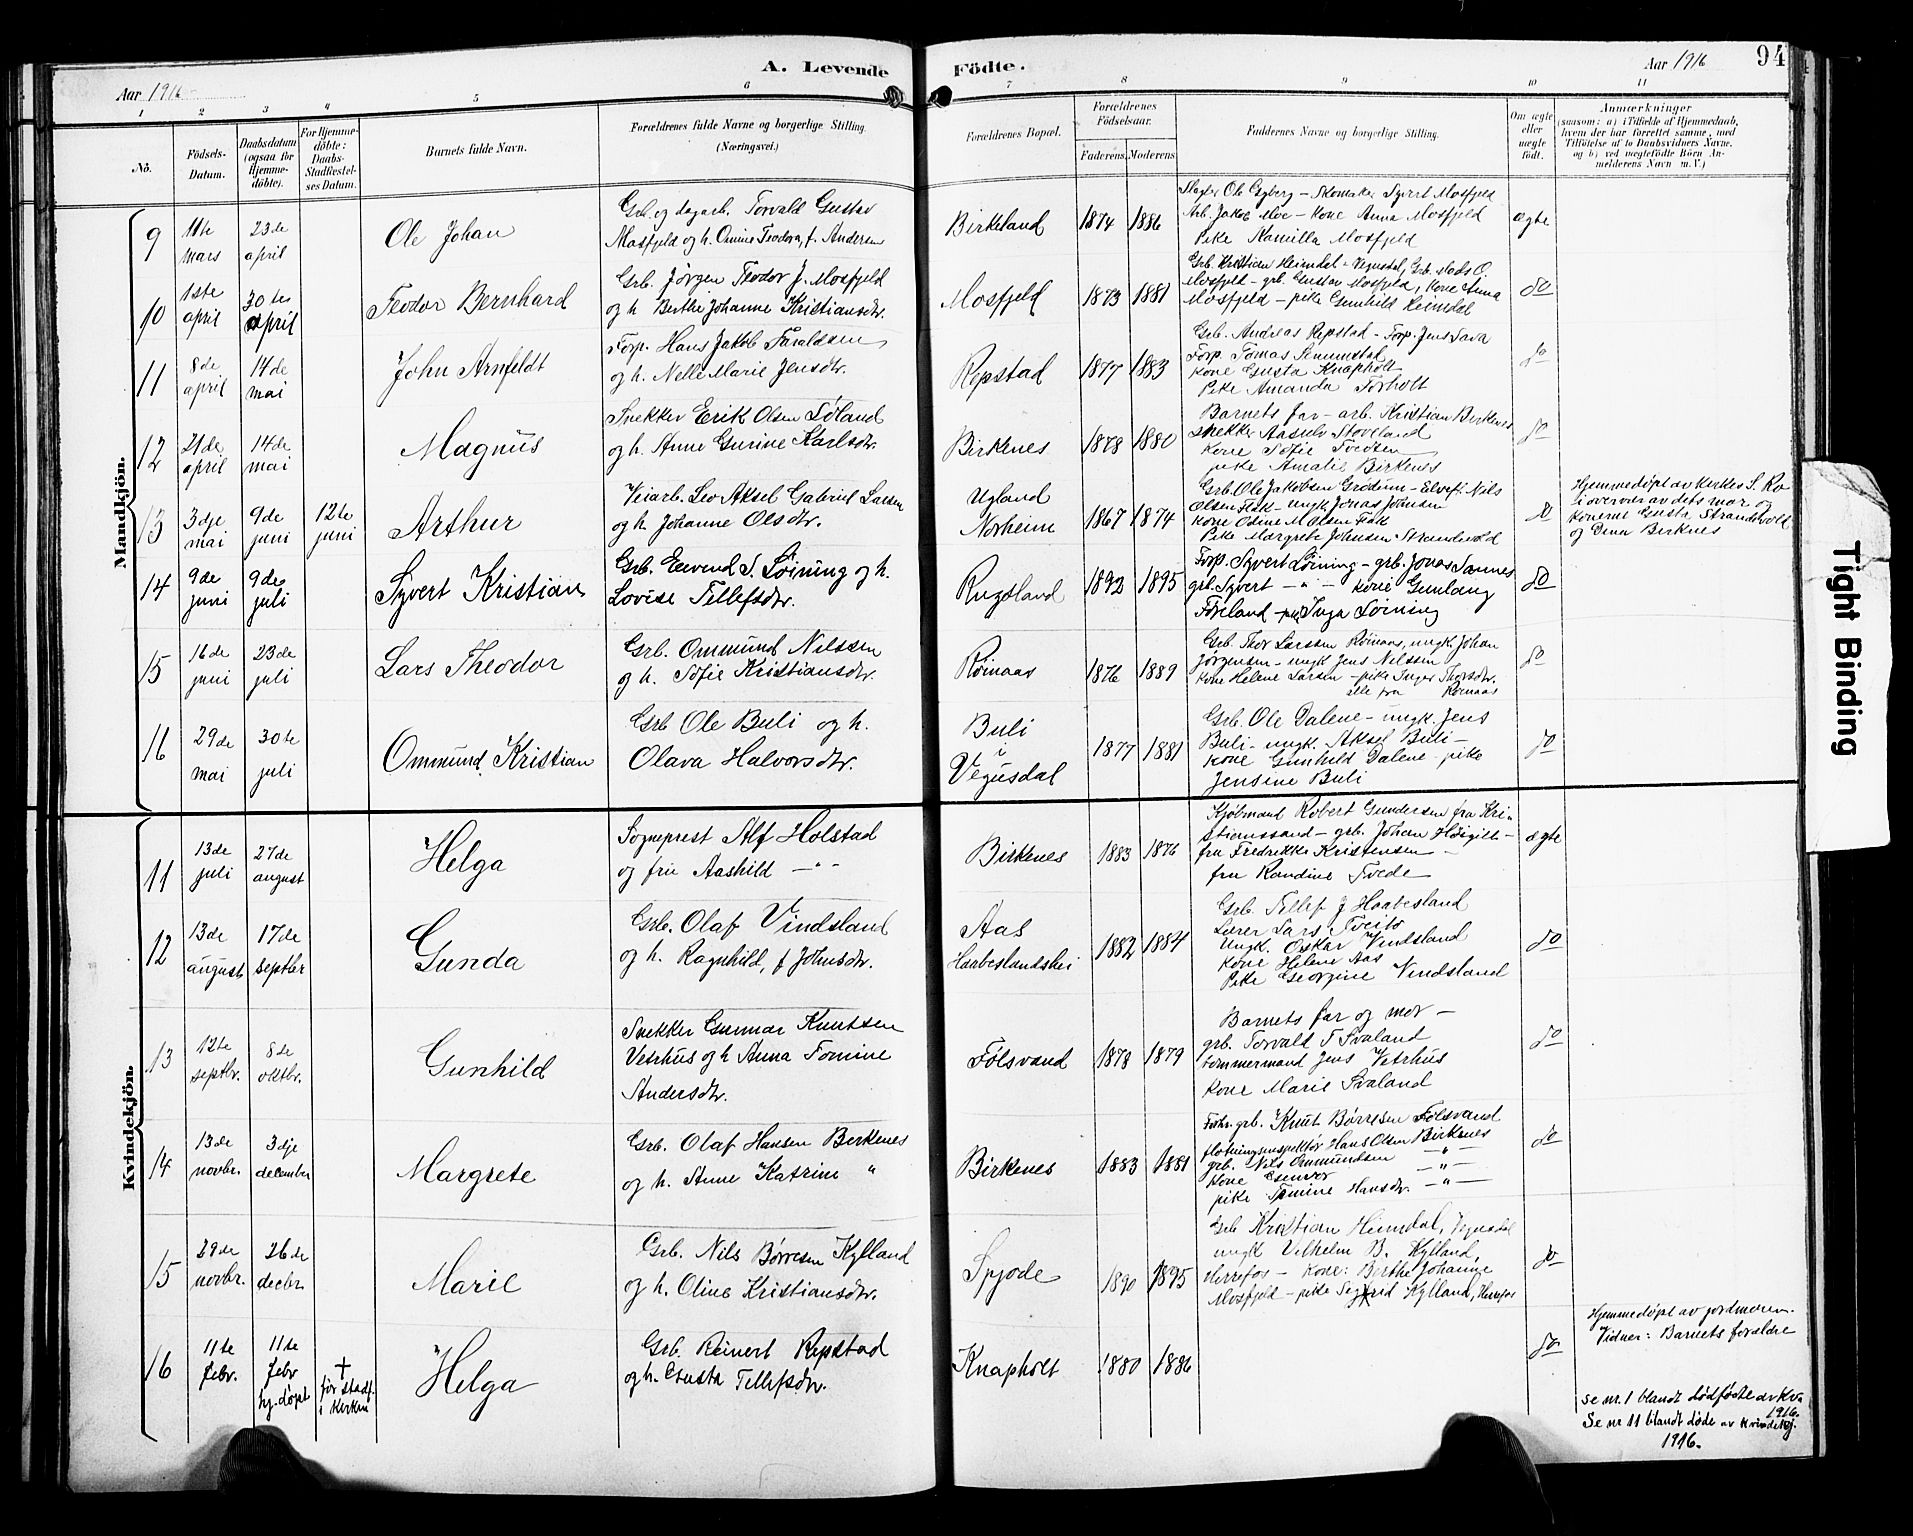 A. Levende Födte.
94
Aar 1916
Aar 1916
1 2 3 4 5 6 7 8 9 10 11
No.
Födsels-Datum.
Daabsdatum (ogsaa for Hjemme-döbte).
For Hjemme-döbte: Daabs-Stadfæstel-ses Datum.
Barnets fulde Navn.
Forældrenes fulde Navne og borgerlige Stilling.
(Næringsvei.)
Forældrenes Bopæl.
Forældrenes Födselsaar.
Faderens. Moderens.
Faddernes Navne og borgerlige Stilling.
Om ægte eller uægte födt.
Anmærkninger
(saasom: a) i Tilfælde af Hjemmedaab,
hvem der har forrettet samme, med
Tilföielse af to Daabsvidners Navne,
og b) ved uægtefödte Börn An-
melderens Navn m. V.)
Mandkjön.
9 11te mars 23de april Ole Johan
Grb. og dagarb. Torvald Gustav
Mosfjeld og h. Omine Teodora, f. Andersen
Birkeland 1874 1886
Slagter Ole Egeberg – Skomaker Syvert Mosfjeld
Arb. Jakob Moe – Kone Anna Mosfjeld
Pike Kamilla Mosfjeld
ægte
10 1ste april 30te april Teodor Bernhard
Grb. Jörgen Teodor J. Mosfjeld
og h Berthe Johanne Kristiansdtr.
Mosfjeld 1873 1881
Grb. Kristian Heimdal – Vegusdal, Grb. Mads O.
Mosfjeld – grb. Gustav Mosfjeld, Kone Anna
Mosfjeld – pike Gunhild Heimdal
do
11 8de april 14de mai John Arnfeldt
Forp. Hans Jakob Taraldsen
og h. Nelle Marie Jensdtr.
Repstad 1877 1883
Grb. Andreas Repstad – Forp. Jens Tava
Forp. Tomas Senumstad
Kone Gusta Knapholt
Pike Amanda Torholt
do
12 21de april 14de mai Magnus
Snekker Erik Olsen Föland
og h. Anne Gurine Karlsdtr.
Birkenes 1878 1880
Barnets far – arb. Kristian Birkenes
snekker Aasulv Stoveland
Kone Sofie Tveiten
pike Amalie Birkenes
do
13 3dje mai 9de juni 12te juni Arthur
Veiarb. Leo Aksel Gabriel Larsen
og h. Johanne Olsdtr.
Ugland
Norheim
1867 1874
Grb. Ole Jakobsen Grödum – Elvefl. Nils
Olsen Flak – ungk. Jonas Johnsen
Kone Osine M Olsen Flak
Pike Margrete Johnsen Strandvold
do
Hjemmedøpt av kirkes S. Ro
i overvær av dets mor og
konerne Gustr. Strandevold
og Dina Birknes
14 9de juni 9de juli Syvert Kristian
Grb. Eivend S. Löining og h.
Lovise Tellefsdtr.
Rugsland 1892 1895
Forp. Syvert Löining – grb. Jonas Sannes
grb. Syvert – " – Kone Gunlaug
Föreland – pike Inga Löining
do
15 16de juni 23de juli Lars Theodor
Grb. Ommund Nilssen
og h. Sofie Kristiansdtr.
Röinaas 1876 1889
Grb. Thor Larssen Röinaas, ungk. Johan
Jörgensen – ungk Jens Nilssen
Kone Helene Larsen – pike Inger Thorsdtr.
alle fra Röinaas
do
16 29de mai 30te juli Ommund Kristian
Grb Ole Buli og h.
Olava Halvorsdtr.
Buli
i
Vegusdal
1877 1881
Grb. Ole Dalene – ungk. Jens
Buli – ungk. Aksel Buli –
Kone Gunhild Dalene – pike
Jensine Buli
do
Kvindekjön.
11 13de juli 27de august Helga
Sogneprest Alf Holstad
og frue Aashild – " –
Birkenes 1883 1876
Kjøbmand Robert Gundersen fra Kri-
stianssand – grb. Johan Höigilt –
fru Fredrikke Kristensen –
fru Randine Tvede
ægte
12 13de august 17de septbr Gunda
Grb. Olaf Vindsland
og h. Ragnhild, f Johnsdtr.
Aas
Haabeslandshei
1882 1884
Grb. Tellef J Haabesland
Lærer Lars Tveito
Ungk. Oskar Vindsland
Kone Helene Aas
Pike Georgine Vindsland
do
13 12te septbr. 8de oktbr. Gunhild
Snekker Gunnar Knutsen
Vetrhus og h Anna Tomine
Andersdtr.
Fölsvand 1878 1879
Barnets far og mor –
grb. Torvald T Svaland
tømmermand Jens Vetrhus
Kone Marie Svaland
do
14 13de novbr. 3dje december Margrete
Grb. Olaf Hansen Birkenes
og h. Anne Katrine "
Birkenes 1883 1881
Forhv. grb. Knut Børresen Følsvand
fløtningsinspektør Hans Olsen Birkenes
grb. Nils Ommundsen – " –
Kone Gunvor – " –
pike Tomine Hansdtr. – " –
do
15 29de novbr. 26de decbr. Marie
Grb. Nils Børresen Kylland
og h. Oline Kristiansdtr.
Spjode 1890 1895
Grb Kristian Heimdal, Vegusdal
ungk Vilhelm B. Kylland,
Herrefos – Kone: Berthe Johanne
Mosfjeld – pike Sigrid Kylland, Herrefos
do
16 11te febr. 11te febr hj. døpt † før stadf. i kirken Helga
Grb. Reinert Repstad
og h. Gusta Tellefsdtr.
Knapholt 1880 1886
do
Hjemmedøpt av jordmoren.
Vidner: Barnets forældre
Se nr. 1 blandt dødfødte av Kv.
1916.
Se nr 11 blandt døde av kvindekj.
1916.
Tight Binding